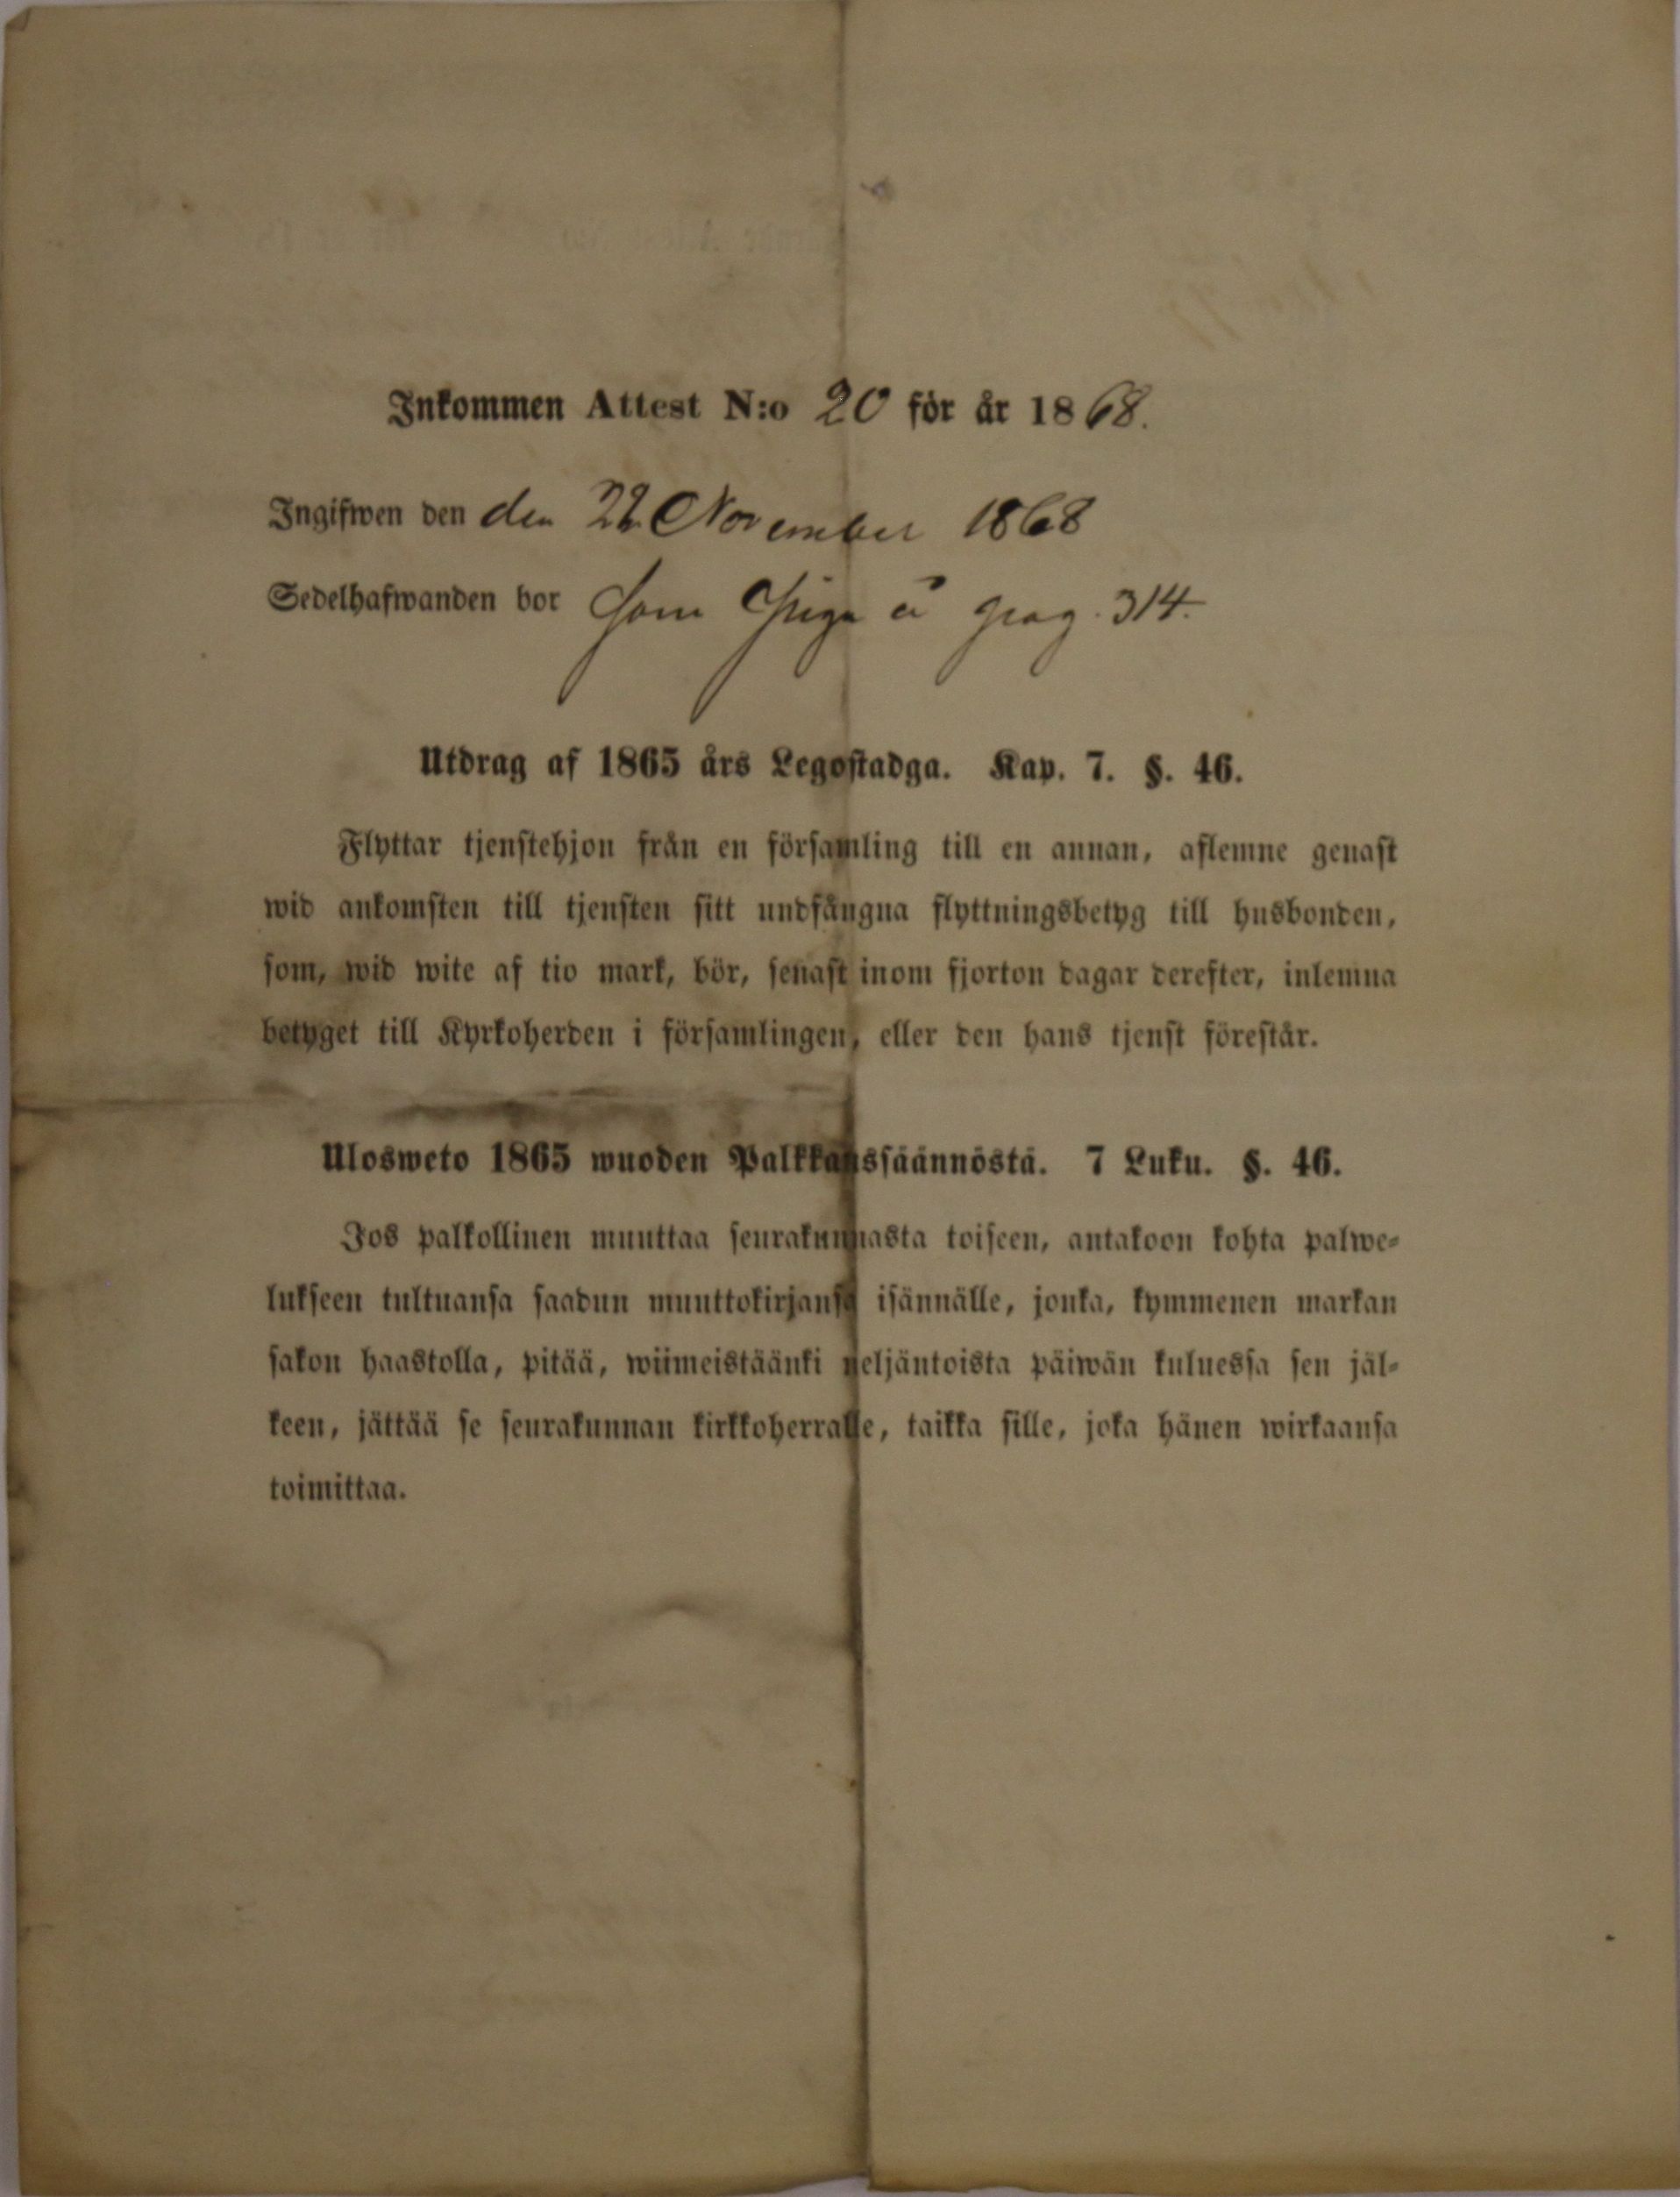 Inkommen Attest N:o 20 för år 1868.
Ingifwen den den 22 November 1868
Sedelhafwanden bor som Piga å pag. 314.
Utdrag af 1865 års Legostadga. Kap. 7. §. 46.
Flyttar tjenstehjon från en församling till en annan, aflemne genast
wid ankomsten till tjensten sitt undfångna flyttningsbetyg till husbonden,
som, wid wite af tio mark, bör, senast inom fjorton dagar derefter, inlemna
betyget till Kyrkoherden i församlingen, eller den hans tjenst förestår.
Ulosweto 1865 wuoden Palkkaussäännöstä. 7 Luku. §. 46.
Jos palkollinen muuttaa seurakunnasta toiseen, antakoon kohta palwe-
lukseen tultuansa saadun muuttokirjansa isännälle, jonka, kymmenen markan
sakon haastolla, pitää, wiimeistäänki neljäntoista päiwän kuluessa sen jäl-
keen, jättää se seurakunnan kirkkoherralle, taikka sille, joka hänen wirkaansa
toimittaa.